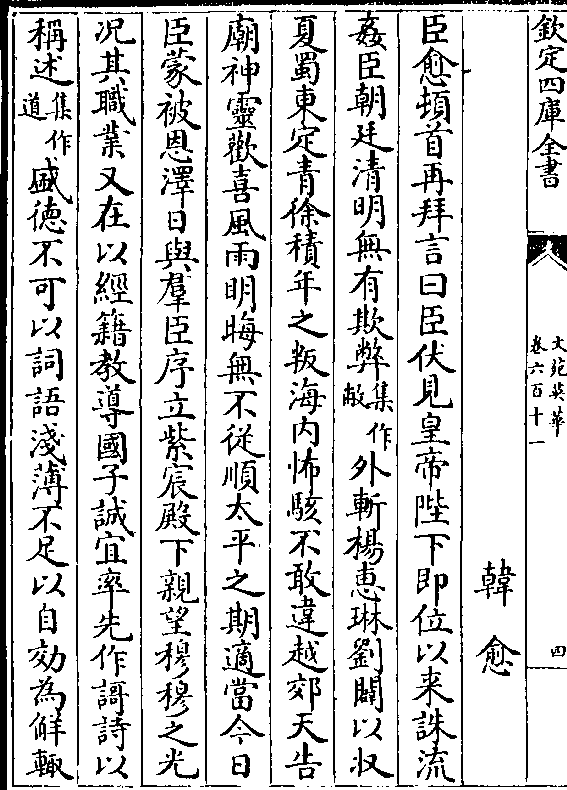 欽定四庫全書
文苑英華
卷六百十一
四
韓愈
臣愈頓首再拜言曰臣伏見皇帝陛下即位以来誅流
姦臣朝廷清明無有欺弊集作敝外斬楊恵琳劉闢以収
夏蜀東定青徐積年之叛海内怖駭不敢違越郊天告
廟神靈歡喜風雨明晦無不從順太平之期適當今日
臣蒙被恩澤日與羣臣序立紫宸殿下親望穆穆之光
況其職業又在以經籍教導國子誠宜率先作謌詩以
稱述集作道盛德不可以詞語淺薄不足以自効為解輙